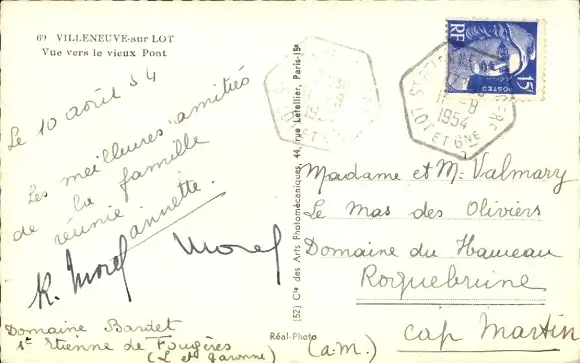 69 VILLENEUVE-sur LOT
Vue vers le vieux Pont
Le 10 août 54
Les meilleures amitiés
de la famille
réunie.
annette.
R. Morel
Morel
Domaine Bardet
St Etienne de Fougères
(L et Garonne)
(52) Cie des Arts Photomécaniques, 44, rue Letellier, Paris-15e
Réal-Photo
RF
POSTES
15F
11-8
1954
LOT ET GNE
1954
Madame et M. Valmary
Le Mas des Oliviers
Domaine du Hameau
Roquebrune
Cap Martin
(a.m.)